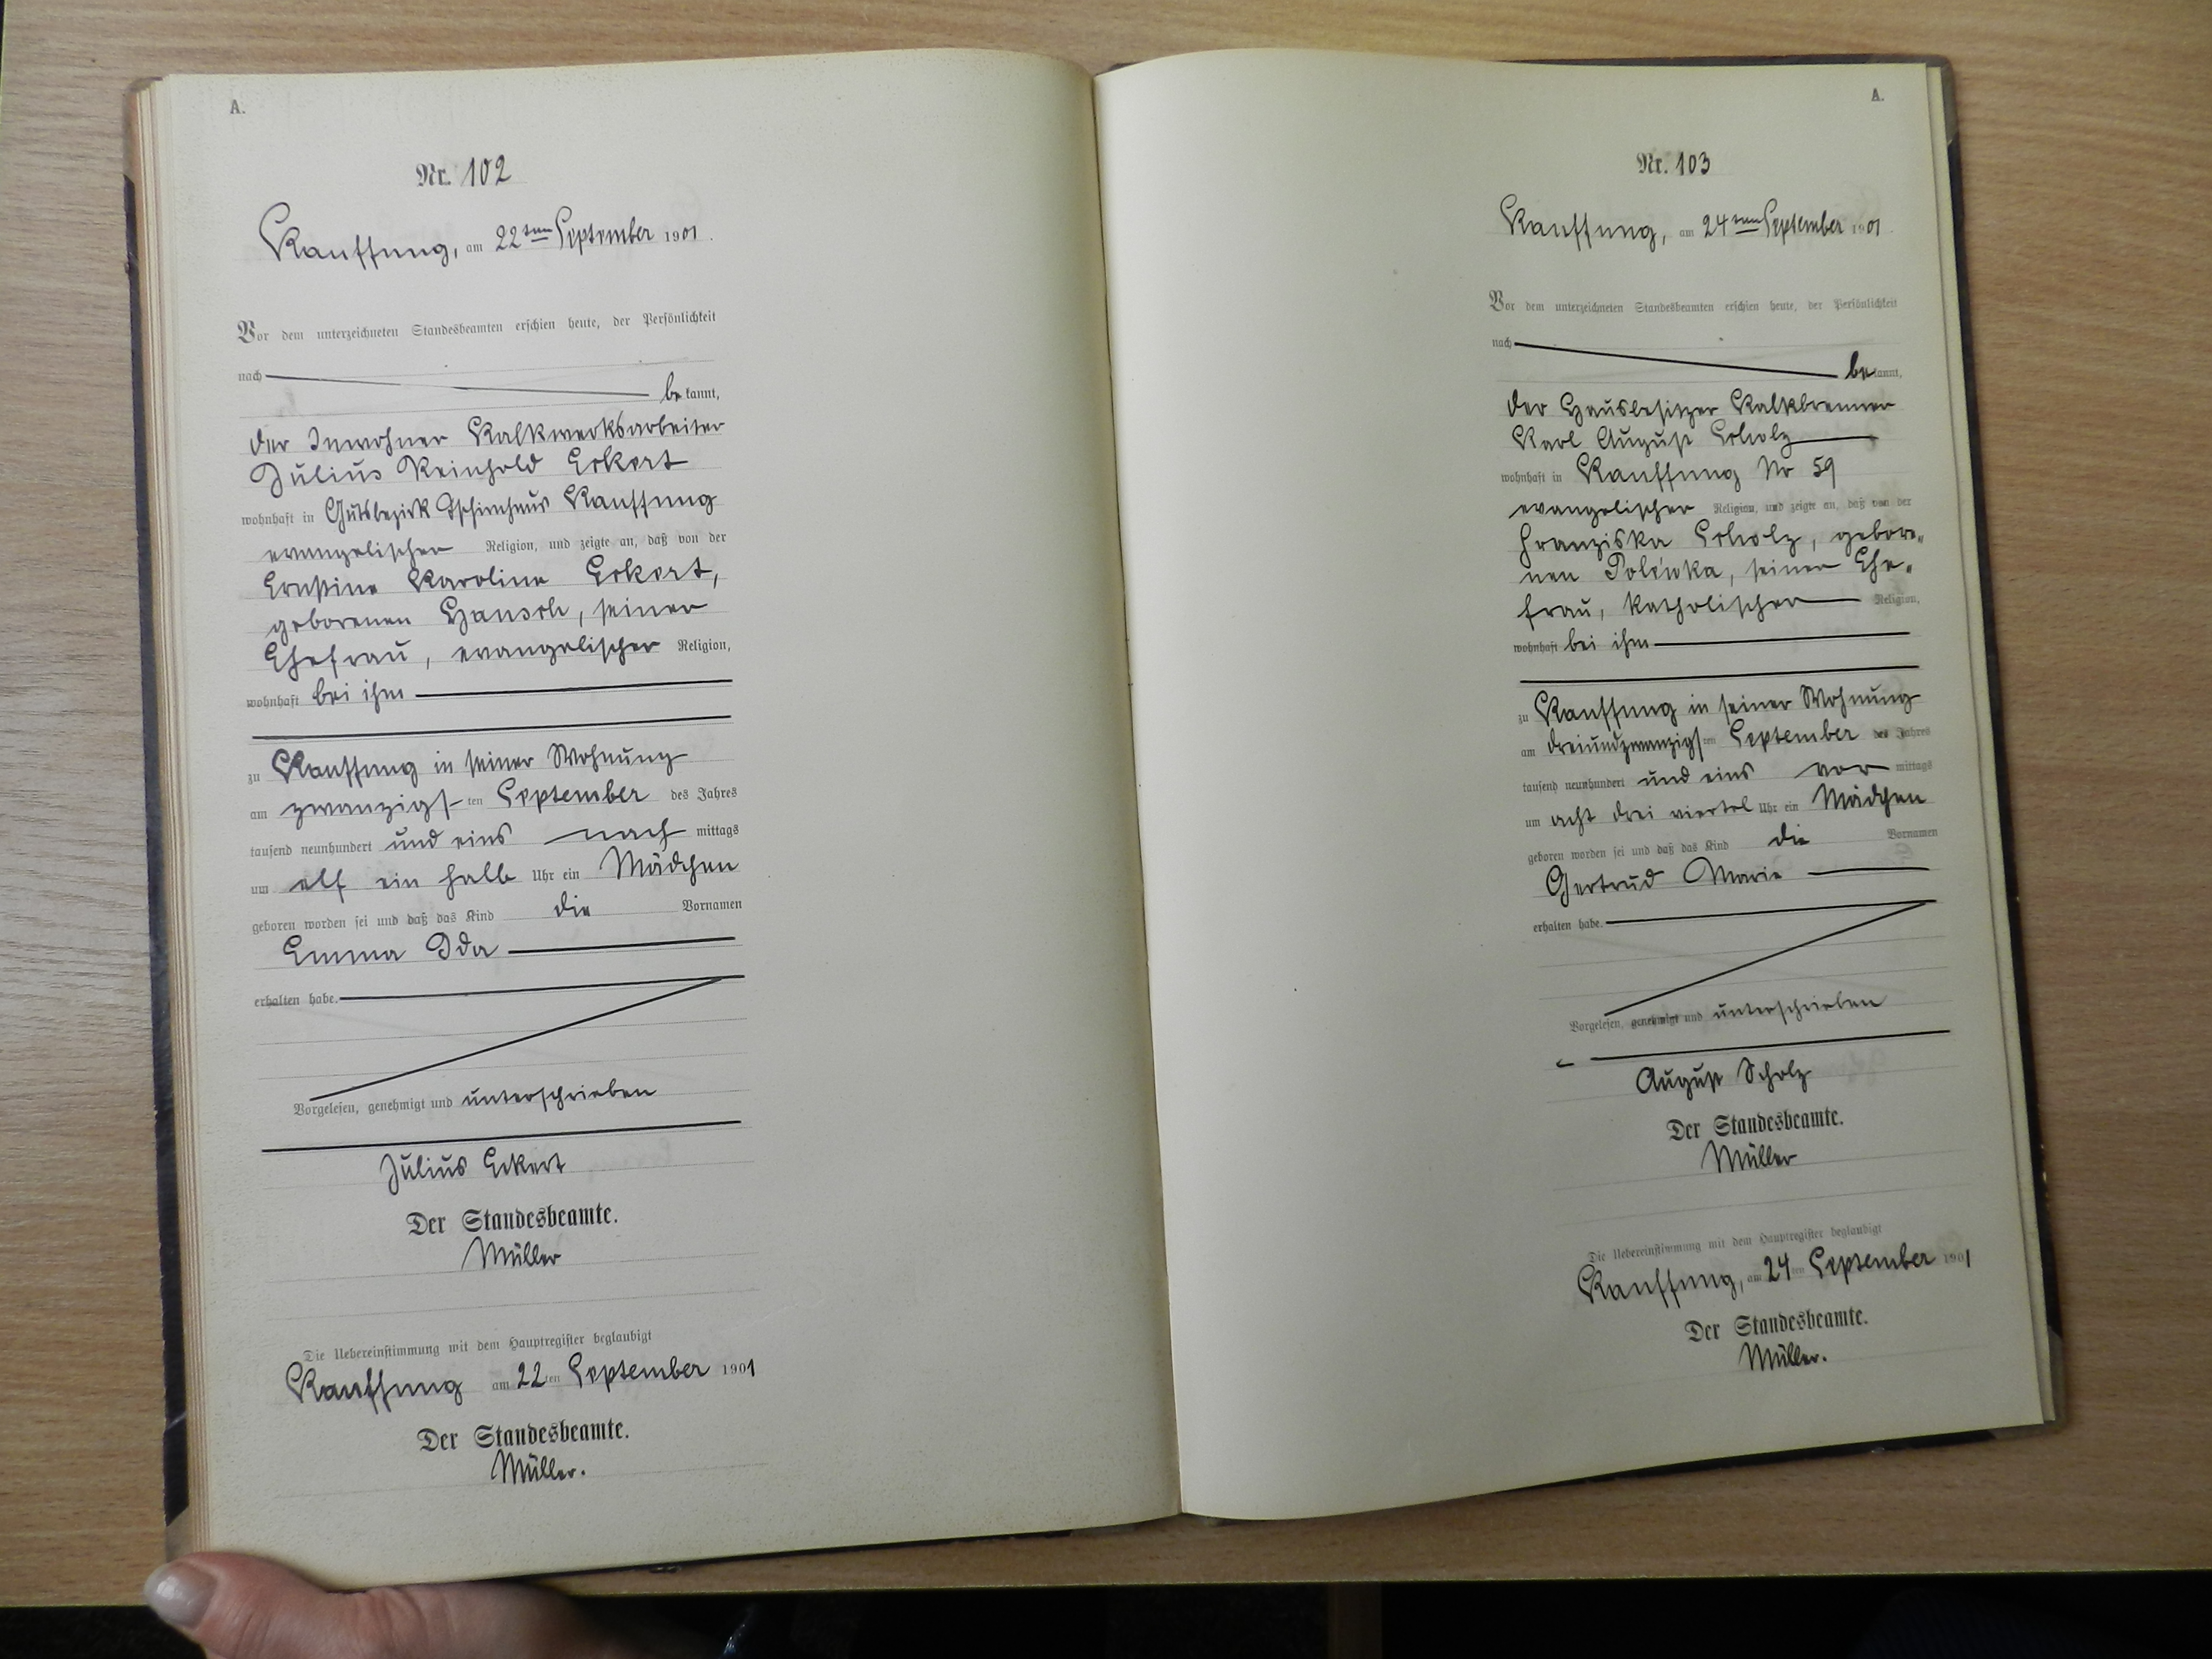 A.
Nr. 102
Kauffung, am 22ten September 1901.
Vor dem unterzeichneten Standesbeamten erschien heute, der Persönlichkeit
nach
bekannt,
der Inwohner Kalkwerksarbeiter
Julius Reinhold Eckert
wohnhaft in Gutsbezirk Tschirnhaus Kauffung
evangelischer Religion, und zeigte an, daß von der
Ernstine Karoline Eckert,
geborenen Hansch, seiner
Ehefrau, evangelischer Religion,
wohnhaft bei ihm
zu Kauffung in seiner Wohnung
am zwanzigsten September des Jahres
tausend neunhundert und eins nachmittags
um elf ein halb Uhr ein Mädchen
geboren worden sei und daß das Kind die Vornamen
Emma Ida
erhalten habe.
Vorgelesen, genehmigt und unterschrieben
Julius Eckert
Der Standesbeamte.
Müller
Die Uebereinstimmung mit dem Hauptregister beglaubigt
Kauffung am 22ten September 1901
Der Standesbeamte.
Müller.
A.
Nr. 103
Kauffung, am 24ten September 1901.
Vor dem unterzeichneten Standesbeamten erschien heute, der Persönlichkeit
nach
bekannt,
der Hausbesitzer Kalkbrenner
Karl August Scholz
wohnhaft in Kauffung Nr 59
evangelischer Religion, und zeigte an, daß von der
Franziska Scholz, gebore„
nen Polenka, seiner Ehe„
frau, katholischer Religion,
wohnhaft bei ihm
zu Kauffung in seiner Wohnung
am dreiundzwanzigsten September des Jahres
tausend neunhundert und eins vormittags
um acht drei viertel Uhr ein Mädchen
geboren worden sei und daß das Kind die Vornamen
Gertrud Marie
erhalten habe.
Vorgelesen, genehmigt und unterschrieben
August Scholz
Der Standesbeamte.
Müller
Die Uebereinstimmung mit dem Hauptregister beglaubigt
Kauffung, am 24ten September 1901
Der Standesbeamte.
Müller.